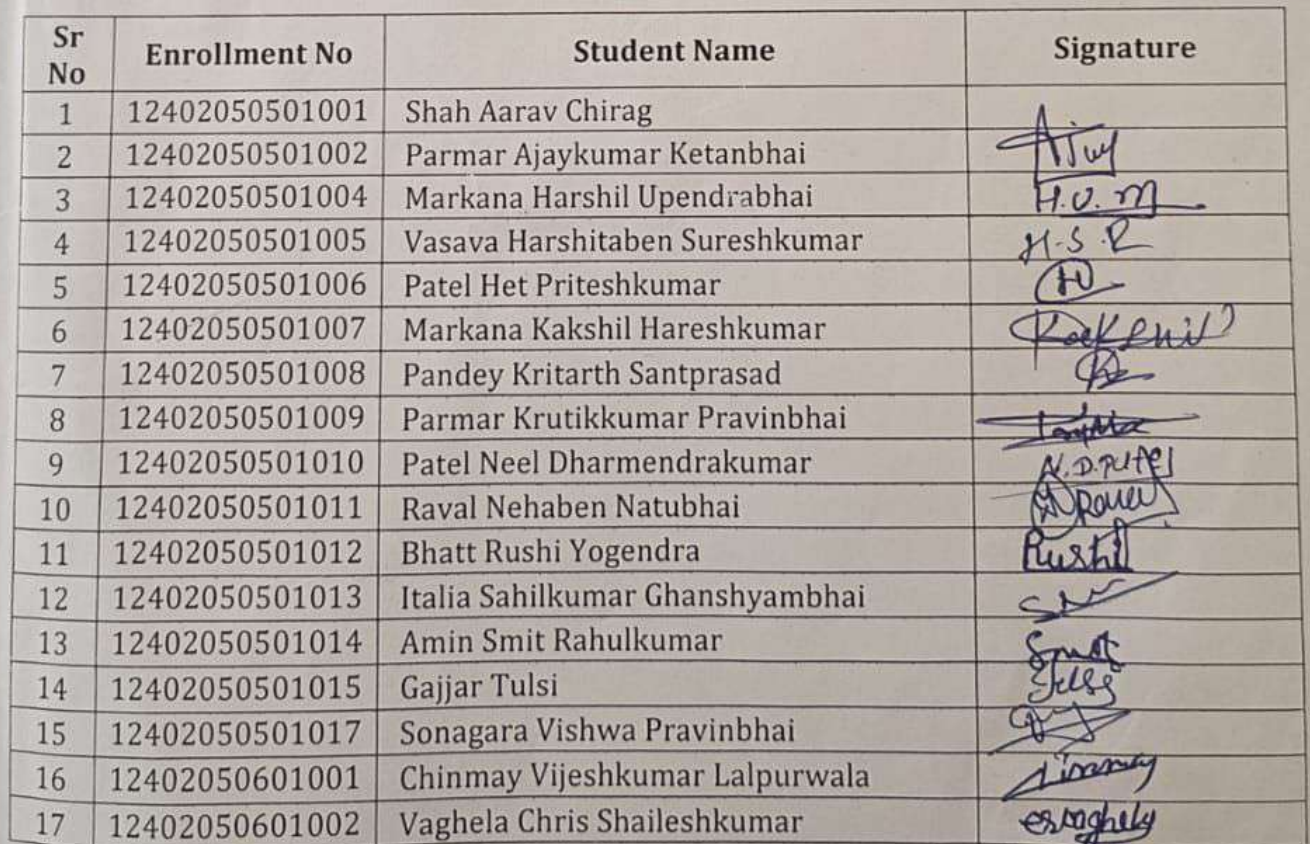 Sr No Enrollment No Student Name Signature
1 12402050501001 Shah Aarav Chirag
2 12402050501002 Parmar Ajaykumar Ketanbhai
3 12402050501004 Markana Harshil Upendrabhai H.U.M
4 12402050501005 Vasava Harshitaben Sureshkumar H.S.R
5 12402050501006 Patel Het Priteshkumar
6 12402050501007 Markana Kakshil Hareshkumar
7 12402050501008 Pandey Kritarth Santprasad
8 12402050501009 Parmar Krutikkumar Pravinbhai
9 12402050501010 Patel Neel Dharmendrakumar N.D.Patel
10 12402050501011 Raval Nehaben Natubhai
11 12402050501012 Bhatt Rushi Yogendra Rushi
12 12402050501013 Italia Sahilkumar Ghanshyambhai
13 12402050501014 Amin Smit Rahulkumar
14 12402050501015 Gajjar Tulsi
15 12402050501017 Sonagara Vishwa Pravinbhai
16 12402050601001 Chinmay Vijeshkumar Lalpurwala
17 12402050601002 Vaghela Chris Shaileshkumar